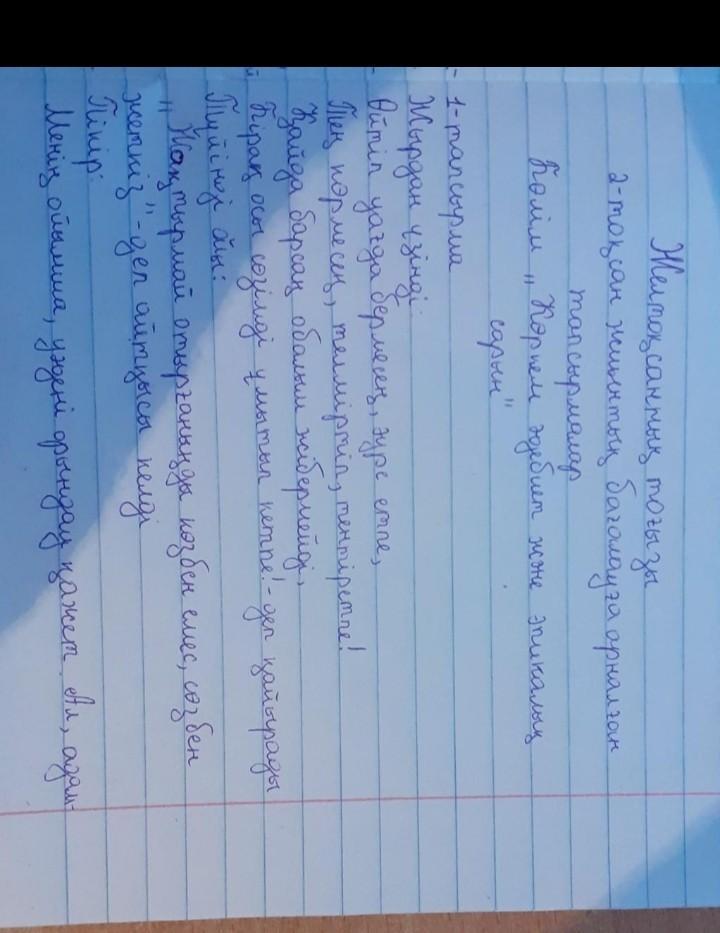 Желтоқсантың тоғызы
2-тоқсан жиынтық бағалауға арналған
тапсырмалар
Бөлім „Көркем әдебиет және эпикалық
сарын"
1-тапсырма
Жырдан үзінді:
Өйтіп уағда бермесең, әуре етпе,
Тең көрмесең, телміртіп, тентіретпе!
Қайда барсаң обалым жібермейді,
Бірақ осы сөзімді ұмытып кетпе! - деп қайырады
Түйінді ой:
„Жақтырмай отырғаныңды көзбен емес, сөзбен
жеткіз" - деп айтқысы келді
Пікір:
Менің ойымша, уәдені орындау қажет. Ал, адам-